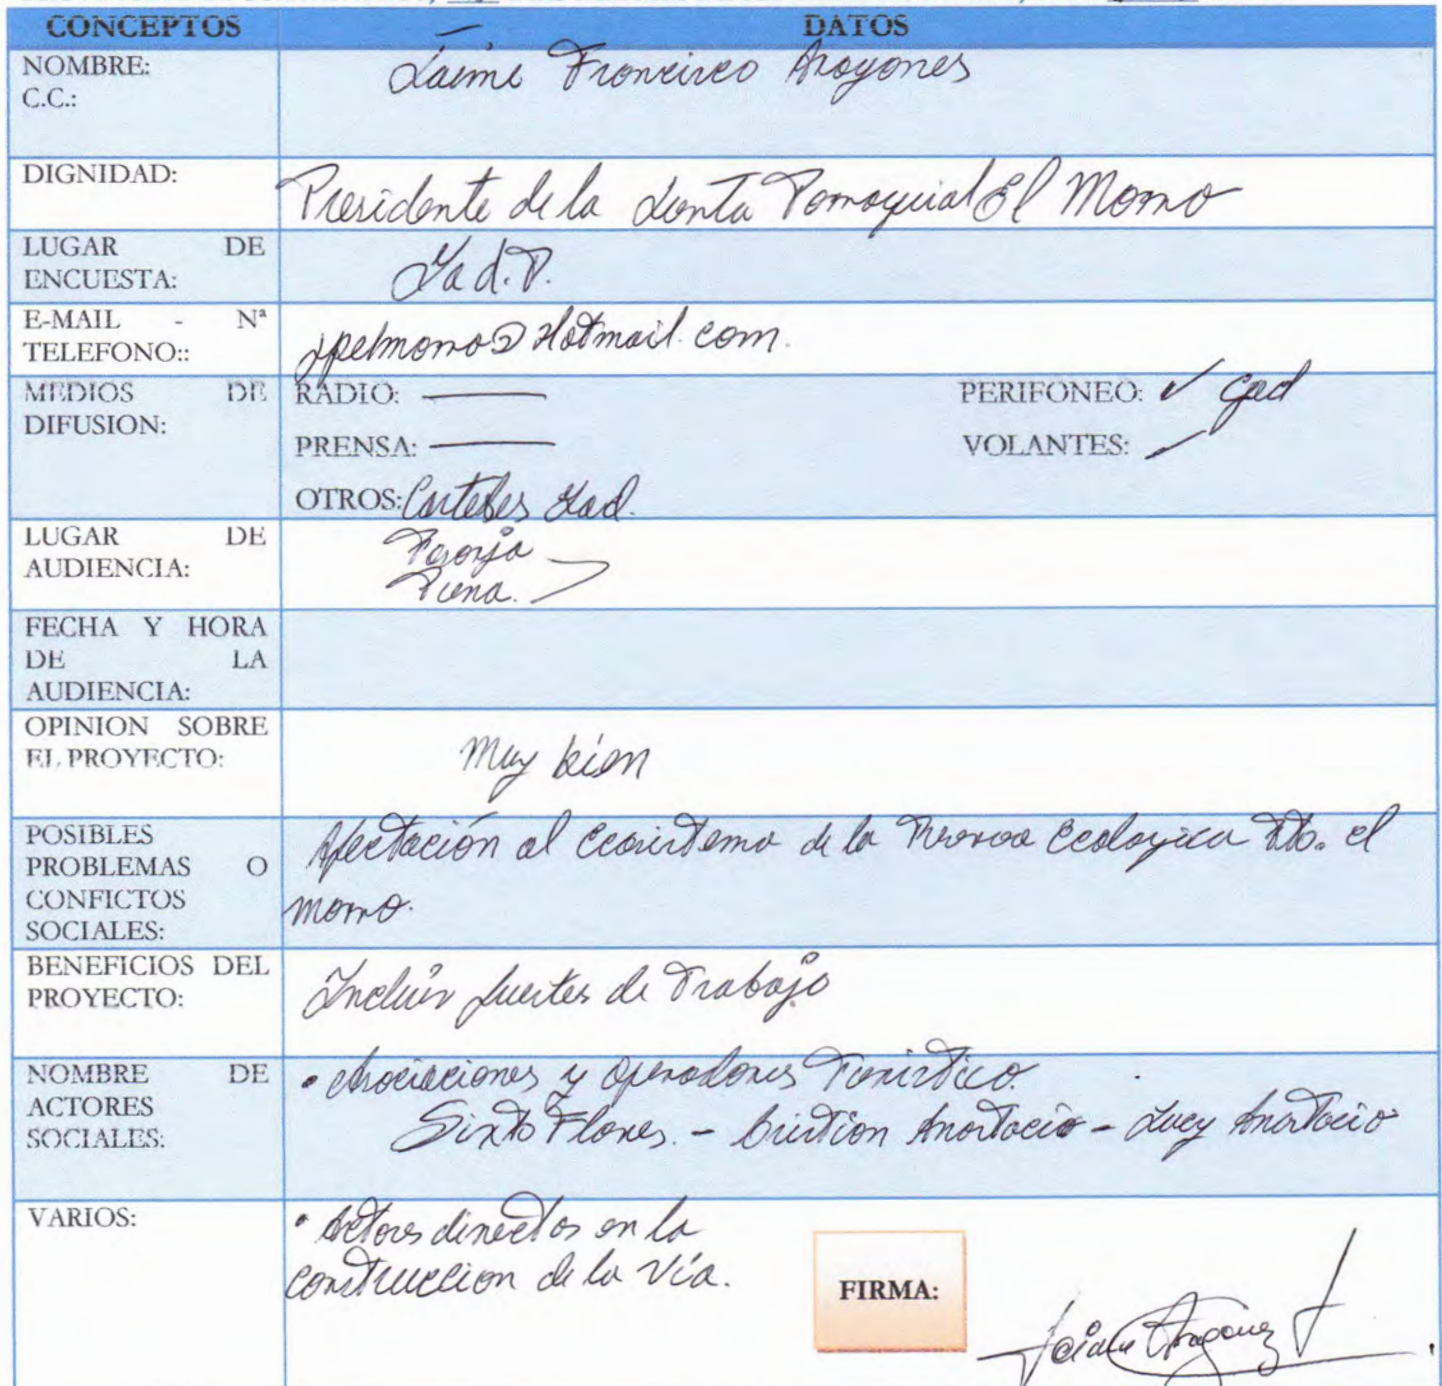 CONCEPTOS DATOS
NOMBRE: Jaime Francisco Aragones
C.C.:
DIGNIDAD: Presidente de la Junta Parroquial El Morro
LUGAR DE ENCUESTA: Gad. P.
E-MAIL - Nª TELEFONO:: jpelmorro@Hotmail.com.
MEDIOS DE DIFUSION:
RADIO: — PERIFONEO: ✓ Gad
PRENSA: — VOLANTES:
OTROS: Carteles Gad.
LUGAR DE AUDIENCIA:
FECHA Y HORA DE LA AUDIENCIA:
OPINION SOBRE EL PROYECTO: Muy bien
POSIBLES PROBLEMAS O CONFICTOS SOCIALES: Afectación al Ecosistema de la Reserva Ecologica Pto. el
morro.
BENEFICIOS DEL PROYECTO: Incluir fuertes de Trabajo
NOMBRE DE ACTORES SOCIALES: • Asociaciones y Operadores Turistico.
Sixto Flores. - Cristion Anastacio - Lucy Anastacio
VARIOS: • Actores directos en la
construccion de la vía.
FIRMA: